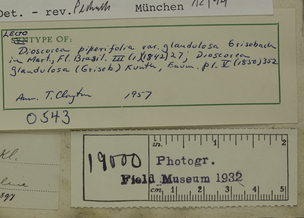 Det. - rev. München
LECTO
TYPE OF:
Dioscorea piperifolia var. glandulosa Grisebach
in Mart, Fl. Brasil. III (1)(1842) 27; Dioscorea
glandulosa (Griseb) Kunth, Enum. pl. V (1850) 352
Ann. T. Clayton 1957
0543
19000
in. 1 2
Photogr.
Field Museum 1932
cm. 1 2 3 4 5
kl.